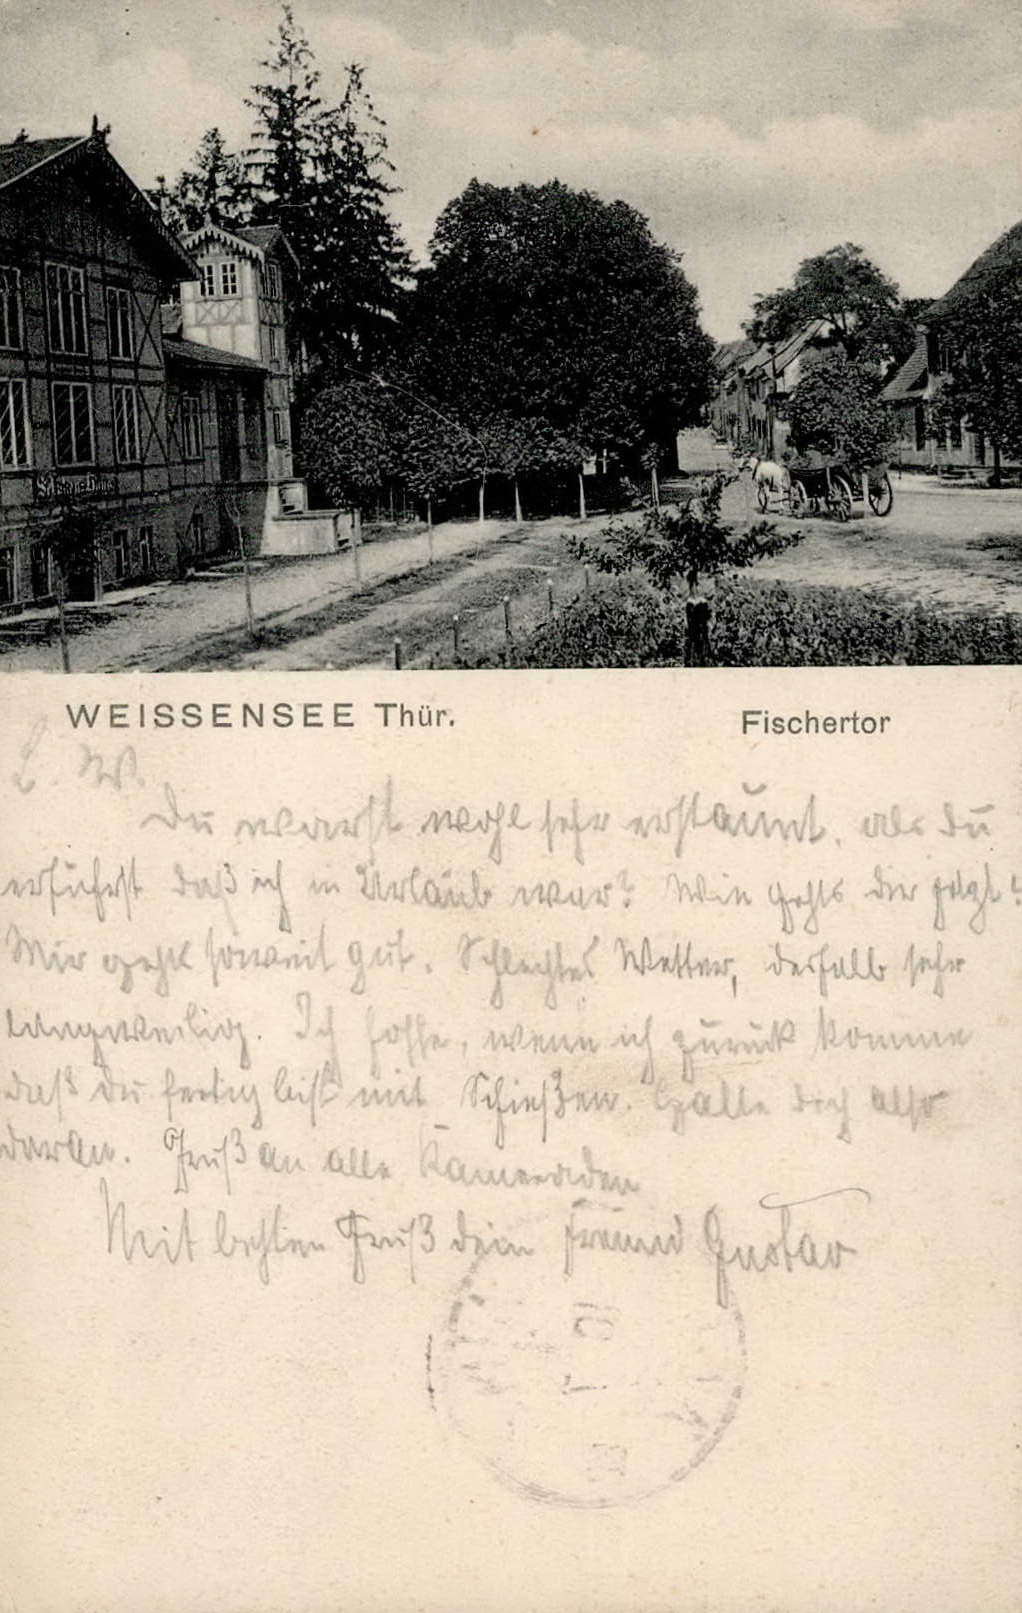 Schützenhaus
WEISSENSEE Thür.
Fischertor
L. W.
Du warst wohl sehr erstaunt, als du
erfuhrst daß ich in Urlaub war? Wie gehts dir jetzt?
Mir gehts soweit gut. Schlechtes Wetter, deshalb sehr
langweilig. Ich hoffe, wenn ich zurück komme
daß du fertig bist mit Schießen. Halte dich also
daran. Gruß an alle Kameraden
Mit besten Gruß dein Freund Gustav